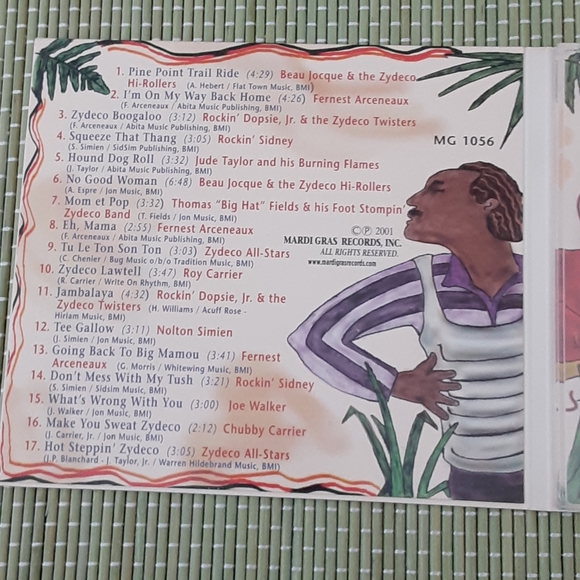 1. Pine Point Trail Ride (4:29) Beau Jocque & the Zydeco
Hi-Rollers (A. Hebert / Flat Town Music, BMI)
2. I'm On My Way Back Home (4:26) Fernest Arceneaux
(F. Arceneaux / Abita Music Publishing, BMI)
3. Zydeco Boogaloo (3:12) Rockin' Dopsie, Jr. & the Zydeco Twisters
(F. Arceneaux / Abita Music Publishing, BMI)
4. Squeeze That Thang (3:05) Rockin' Sidney
(S. Simien / SidSim Publishing, BMI)
5. Hound Dog Roll (3:32) Jude Taylor and his Burning Flames
(J. Taylor / Abita Music Publishing, BMI)
6. No Good Woman (6:48) Beau Jocque & the Zydeco Hi-Rollers
(A. Espre / Jon Music, BMI)
7. Mom et Pop (3:32) Thomas "Big Hat" Fields & his Foot Stompin'
Zydeco Band (T. Fields / Jon Music, BMI)
8. Eh, Mama (2:55) Fernest Arceneaux
(F. Arceneaux / Abita Music Publishing, BMI)
9. Tu Le Ton Son Ton (3:03) Zydeco All-Stars
(C. Chenier / Bug Music o/b/o Tradition Music, BMI)
10. Zydeco Lawtell (3:47) Roy Carrier
(R. Carrier / Write On Rhythm, BMI)
11. Jambalaya (4:32) Rockin' Dopsie, Jr. & the
Zydeco Twisters (H. Williams / Acuff Rose -
Hiriam Music, BMI)
12. Tee Gallow (3:11) Nolton Simien
(J. Simien / Jon Music, BMI)
13. Going Back To Big Mamou (3:41) Fernest
Arceneaux (G. Morris / Whitewing Music, BMI)
14. Don't Mess With My Tush (3:21) Rockin' Sidney
(S. Simien / Sidsim Music, BMI)
15. What's Wrong With You (3:00) Joe Walker
(J. Walker / Jon Music, BMI)
16. Make You Sweat Zydeco (2:12) Chubby Carrier
(J. Carrier, Jr. / Jon Music, BMI)
17. Hot Steppin' Zydeco (3:05) Zydeco All-Stars
(J.P. Blanchard - J. Taylor, Jr. / Warren Hildebrand Music, BMI)
MG 1056
©℗ 2001
MARDI GRAS RECORDS, INC.
ALL RIGHTS RESERVED.
www.mardigrasrecords.com